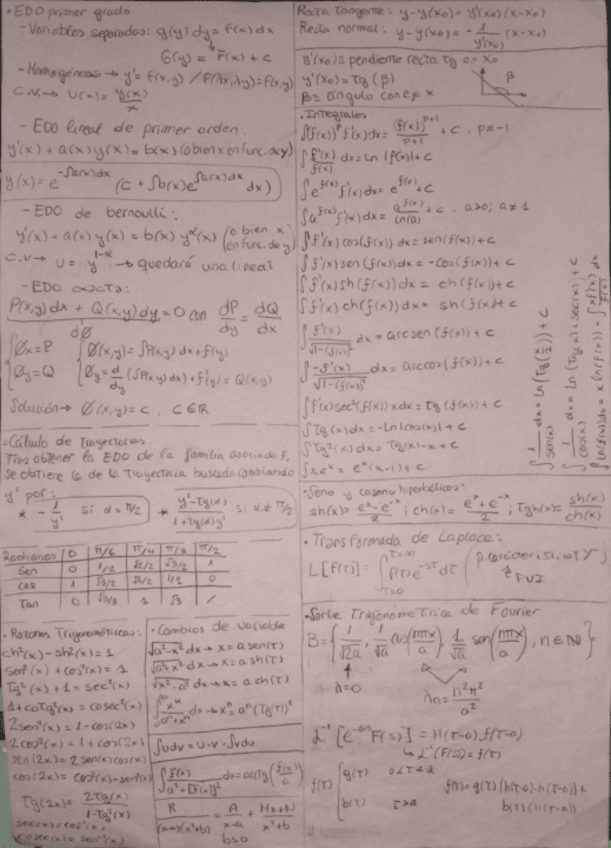 • EDO primer grado
- Variables separadas: g(y) dy = f(x) dx
G(y) = F(x) + c
- Homogéneas → y' = f(x,y) / f(λx,λy)=f(x,y)
C.V. → u(x) = y(x)/x
- EDO lineal de primer orden.
y'(x) + a(x) y(x) = b(x) (o bien x en func. de y)
y(x) = e^{-∫a(x)dx} (c + ∫b(x)e^{∫a(x)dx} dx)
- EDO de bernoulli:
y'(x) + a(x) y(x) = b(x) y^α(x) (o bien x en func. de y)
C.V → u = y^{1-α} → quedará una lineal
- EDO exacta:
P(x,y) dx + Q(x,y) dy = 0 con dP/dy = dQ/dx
dØ
Øx = P Ø(x,y) = ∫P(x,y) dx + f(y)
Øy = Q Øy = d/dy (∫P(x,y) dx) + f'(y) = Q(x,y)
Solución → Ø(x,y) = c, c∈R
• Cálculo de Trayectorias
Tras obtener la EDO de la familia asociada f,
se obtiene la de la Trayectoria buscada cambiando
y' por:
* -1/y' si α = π/2 * y'-Tg(α) / 1+Tg(α)y' si α ≠ π/2
Radianes 0 π/6 π/4 π/3 π/2
Sen 0 1/2 √2/2 √3/2 1
cos 1 √3/2 √2/2 1/2 0
Tan 0 √3/3 1 √3 /
• Razones Trigonométricas:
ch²(x) - sh²(x) = 1
sen²(x) + cos²(x) = 1
Tg²(x) + 1 = sec²(x)
1 + coTg²(x) = cosec²(x)
2sen²(x) = 1 - cos(2x)
2cos²(x) = 1 + cos(2x)
sen(2x) = 2 sen(x) cos(x)
cos(2x) = cos²(x) - sen²(x)
Tg(2x) = 2Tg(x) / 1-Tg²(x)
• Cambios de variable
√a²-x² dx → x = a sen(τ)
√a²+x² dx → x = a sh(τ)
√x²-a² dx → x = a ch(τ)
∫udv = u·v - ∫vdu
∫ f'(x) / a²+[f(x)]² dx = arcTg (f(x)/a)
R / (x-a)(x²+b) = A / x-a + Mx+N / x²+b
b>0
Recta Tangente: y - y(x₀) = y'(x₀) (x-x₀)
Recta normal: y - y(x₀) = - 1/y'(x₀) (x-x₀)
y'(x₀) ≡ pendiente recta Tg en x₀
y'(x₀) = Tg(β)
β ≡ ángulo con eje x
β
• Integrales
∫(f(x))^p f'(x) dx = (f(x))^{p+1} / p+1 + c, p≠-1
∫ f'(x)/f(x) dx = Ln |f(x)| + c
∫e^{f(x)} f'(x) dx = e^{f(x)} + c
∫a^{f(x)} f'(x) dx = a^{f(x)} / Ln(a) + c, a>0; a≠1
∫f'(x) cos(f(x)) dx = sen(f(x)) + c
∫f'(x) sen(f(x)) dx = -cos(f(x)) + c
∫f'(x) sh(f(x)) dx = ch(f(x)) + c
∫f'(x) ch(f(x)) dx = sh(f(x)) + c
∫ f'(x) / √1-(f(x))² dx = arcsen(f(x)) + c
∫ -f'(x) / √1-(f(x))² dx = arccos(f(x)) + c
∫f'(x) sec²(f(x)) x dx = Tg(f(x)) + c
∫Tg(x) dx = -Ln|cos(x)| + c
∫Tg²(x) dx = Tg(x) - x + c
∫xe^x = e^x(x-1) + c
∫ 1/sen(x) dx = Ln(Tg(x/2)) + c
∫ 1/cos(x) dx = Ln(Tg(x)+sec(x)) + c
∫Ln(f(x)) dx = x Ln(f(x)) - ∫ x f'(x)/f(x) dx
• Seno y coseno hiperbólicos
sh(x) = e^x - e^{-x} / 2 ; ch(x) = e^x + e^{-x} / 2 ; Tgh(x) = sh(x)/ch(x)
• Transformada de Laplace:
L[f(τ)] = ∫_{τ=0}^{τ=∞} f(τ) e^{-sτ} dτ
PVI
• Serie Trigonométrica de Fourier
B = {1/√2a, 1/√a cos(nπx/a), 1/√a sen(nπx/a), n∈N}
λ=0 λn = n²π²/a²
L⁻¹[e^{-as} F(s)] = H(τ-a) f(τ-a)
↳ L⁻¹(F(s)) = f(τ)
f(τ) g(τ) 0<τ<a
b(τ) τ>a
f(τ) = g(τ)(h(τ-0)-h(τ-a)) +
b(τ)(h(τ-a))